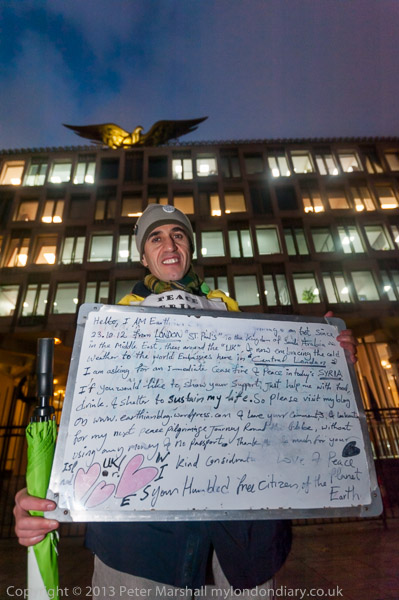 PEACE
Hello, I AM Earth
23.10.12 From LONDON "ST Paul's" to the Kingdom of Saudi Arabia in
the Middle East, then around the "UK", & am embracing the cold
Weather to the World Embassies here in Central London
I am asking for an Immediate Ceasefire & Peace in today's SYRIA
If you would like to show your support, just help me with food
drink, & shelter to sustain my life. So Please visit my blog
on www.earthianblog.wordpress.com & leave your comments
for my next peace Pilgrimage Journey Round the Globe, without
Using any money & no passports. Thank so much for your
Kind Consideration Love & Peace
UK
your Humbled free Citizen of the Planet
Earth
Copyright © 2013 Peter Marshall mylondondiary.co.uk